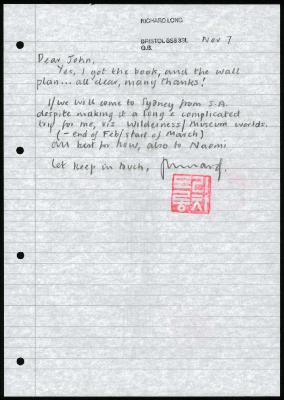 RICHARD LONG
BRISTOL BS8 3SL
G.B.
Nov 7
Dear John,
Yes, I got the book, and the wall
plan... all clear, many thanks!
If we will come to Sydney from S.A.
despite making it a long & complicated
trip for me, vis Wilderness/Museum worlds.
(– end of Feb/start of March)
All best for now, also to Naomi
Let keep in touch, Richard.
리차
드롱